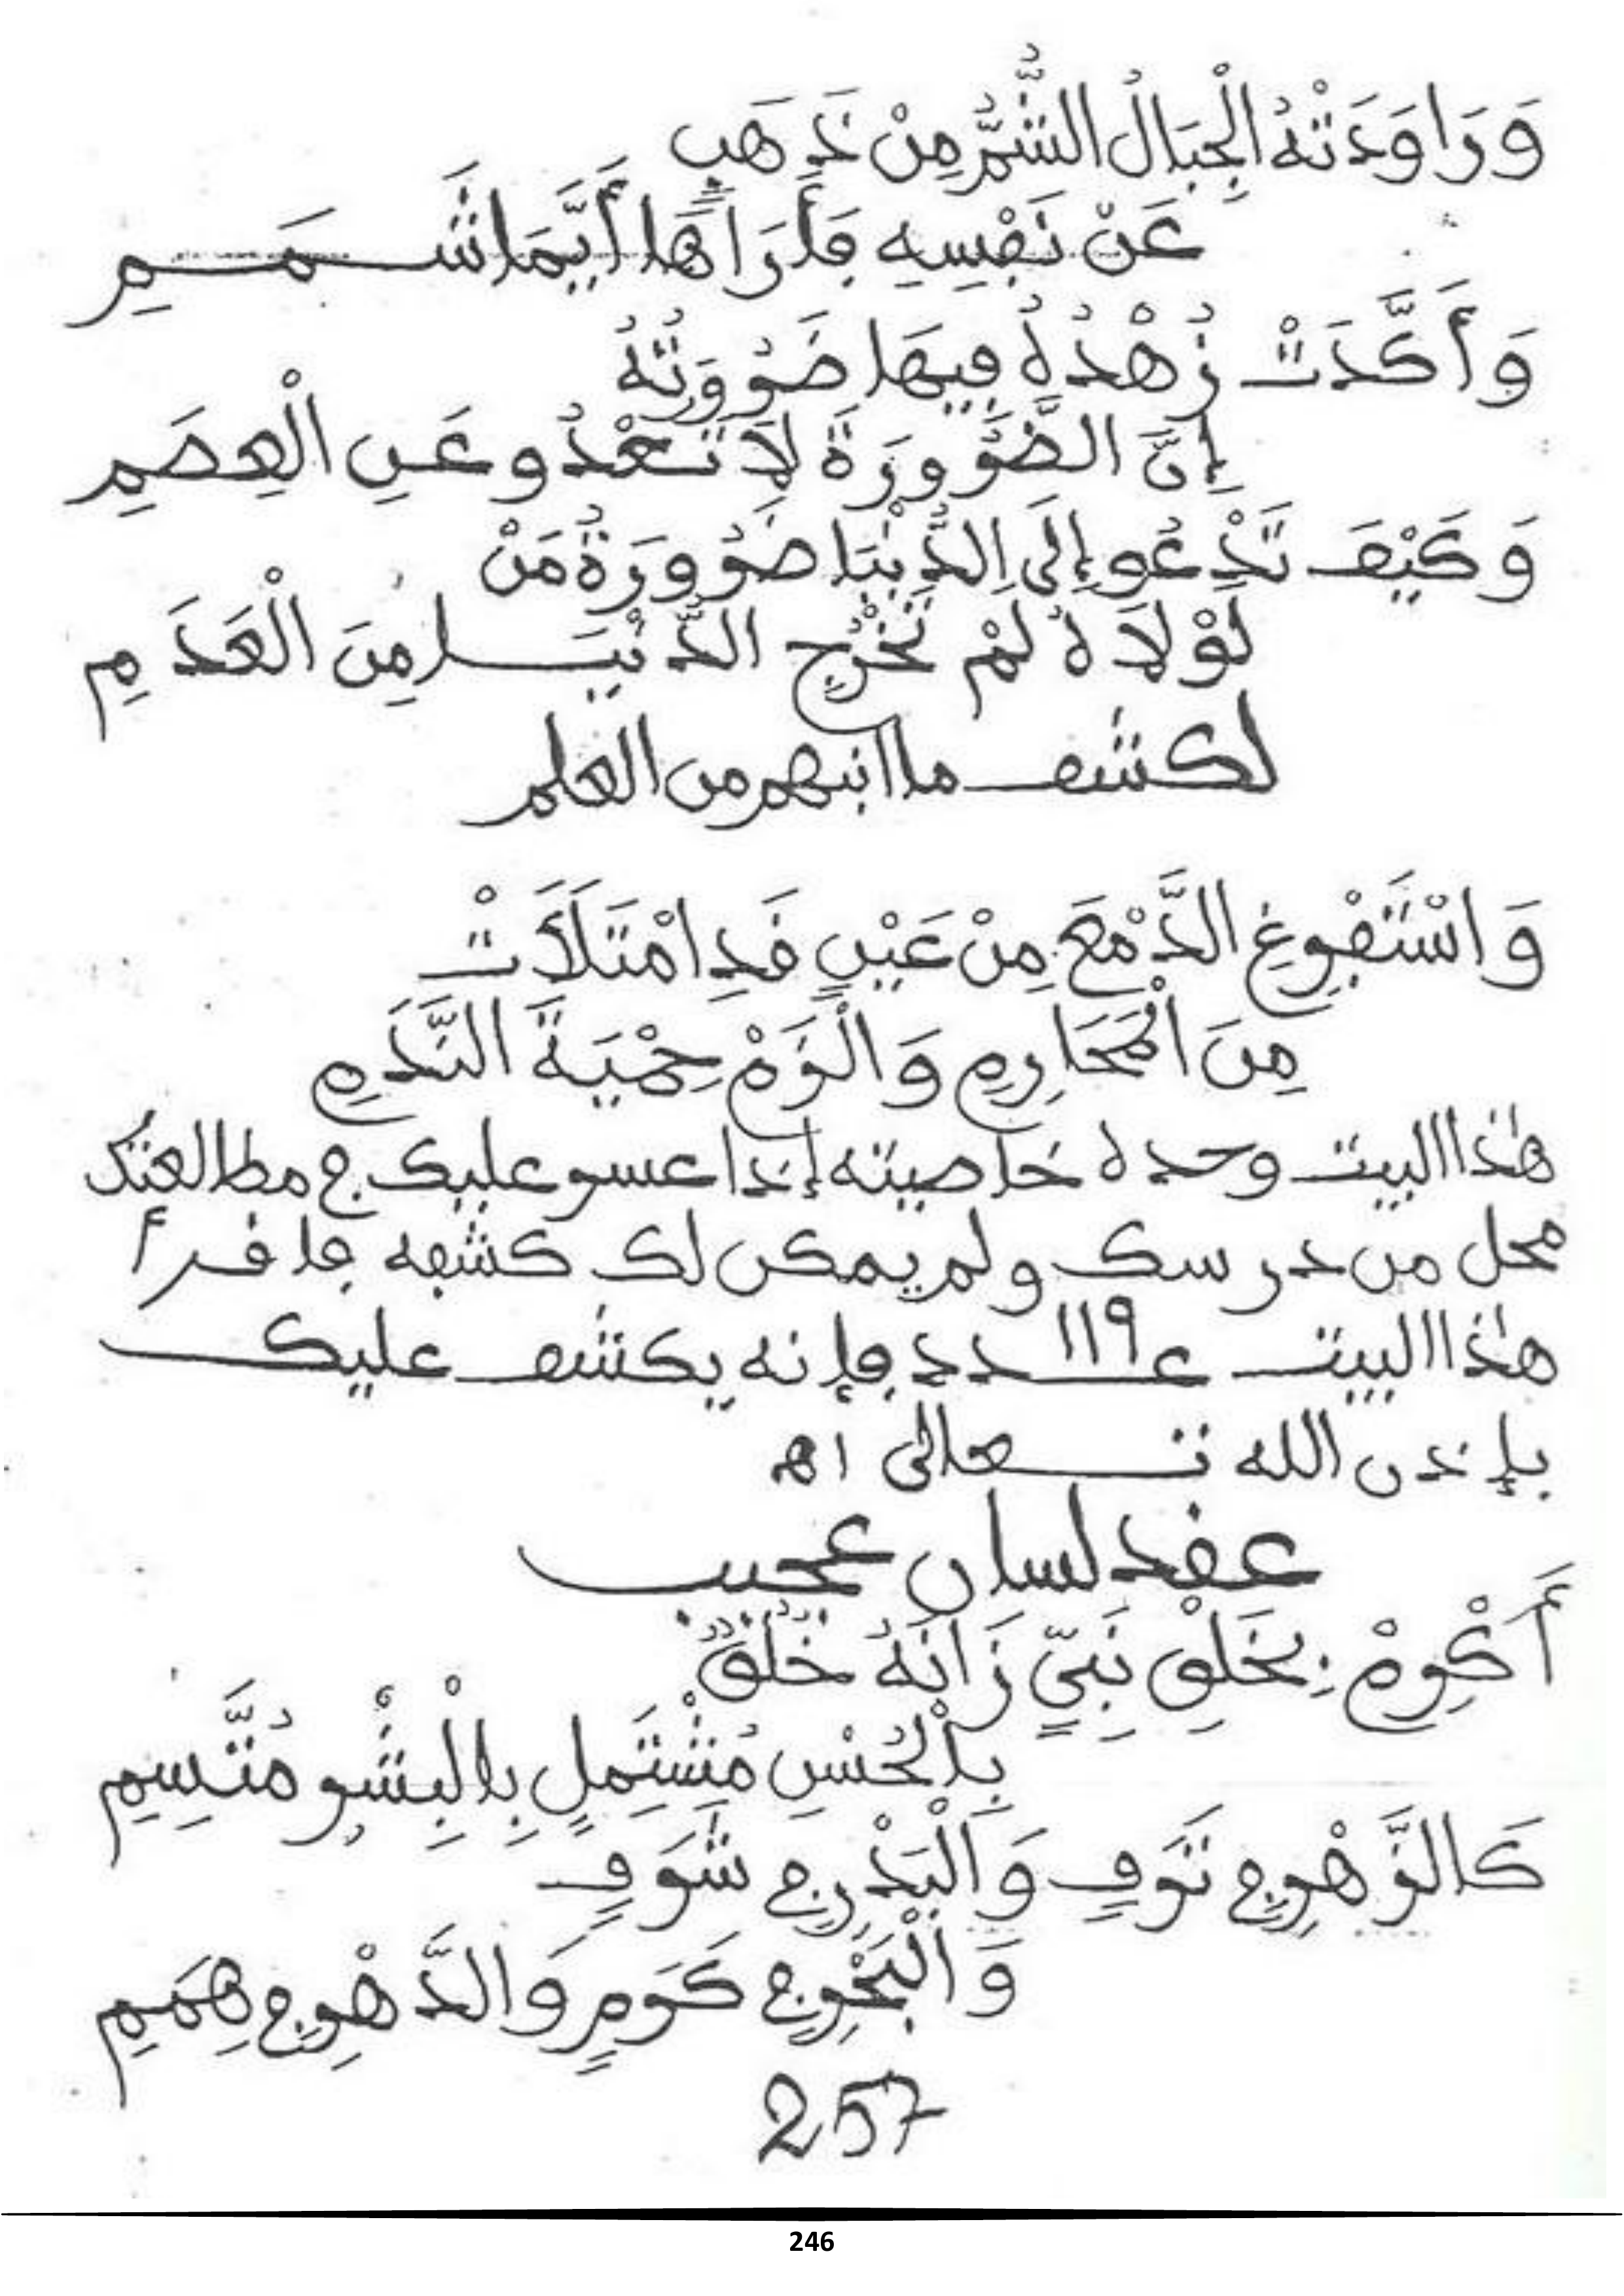 وَرَاوَدَتْهُ الْجِبَالُ الشُّمُّ مِنْ ذَهَبٍ
عَنْ نَفْسِهِ فَأَرَاهَا أَيَّمَا شَمَمِ
وَأَكَّدَتْ زُهْدُهُ فِيهَا ضَرُورَتُهُ
إِنَّ الضَّرُورَةَ لَا تَعْدُو عَنِ الْعِصَمِ
وَكَيْفَ تَدْعُو إِلَى الدُّنْيَا ضَرُورَةُ مَنْ
لَوْلَاهُ لَمْ تَخْرُجِ الدُّنْيَا مِنَ الْعَدَمِ
لكشف ما انبهم من العلم
وَاسْتَفْرِغِ الدَّمْعَ مِنْ عَيْنٍ قَدِ امْتَلَأَتْ
مِنَ الْمَحَارِمِ وَالْزَمْ حِمْيَةَ النَّدَمِ
هٰذا البيت وحده خاصيته إذا عسر عليك في مطالعتك
محل من درسك ولم يمكن لك كشفه فاقرأ
هٰذا البيت ع١١٩ـدد فإنه يكشف عليك
بإذن الله تعالى اه
عقد لسان عجيب
أَكْرِمْ بِخَلْقِ نَبِيٍّ زَانَهُ خُلُقٌ
بِالْحُسْنِ مُشْتَمِلٍ بِالْبِشْرِ مُتَّسِمِ
كَالزَّهْرِ فِي تَرَفٍ وَالْبَدْرِ فِي شَرَفٍ
وَالْبَحْرِ فِي كَرَمٍ وَالدَّهْرِ فِي هِمَمِ
257
246